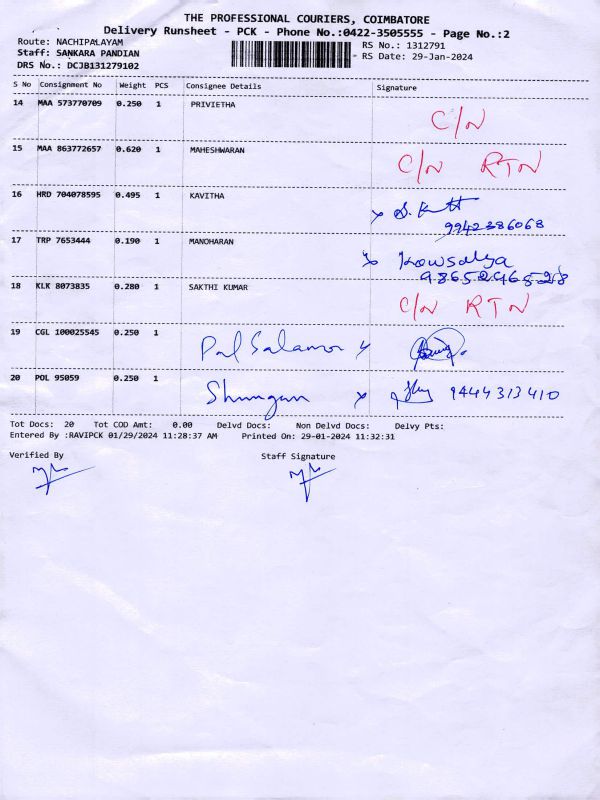 THE PROFESSIONAL COURIERS, COIMBATORE
Delivery Runsheet - PCK - Phone No.:0422-3505555 - Page No.:2
Route: NACHIPALAYAM
RS No.: 1312791
Staff: SANKARA PANDIAN
RS Date: 29-Jan-2024
DRS No.: DCJB131279102
S No Consignment No Weight PCS Consignee Details Signature
14 MAA 573770709 0.250 1 PRIVIETHA C/N
15 MAA 863772657 0.620 1 MAHESHWARAN C/N RTN
16 HRD 704078595 0.495 1 KAVITHA
9942386068
17 TRP 7653444 0.190 1 MANOHARAN Kowsalya
9865296528
18 KLK 8073835 0.280 1 SAKTHI KUMAR C/N RTN
19 CGL 100025545 0.250 1
20 POL 95059 0.250 1 9444313410
Tot Docs: 20 Tot COD Amt: 0.00 Delvd Docs: Non Delvd Docs: Delvy Pts:
Entered By :RAVIPCK 01/29/2024 11:28:37 AM Printed On: 29-01-2024 11:32:31
Verified By Staff Signature